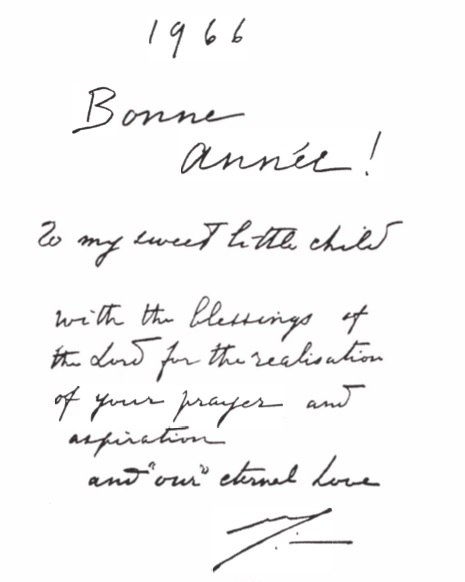 1966
Bonne
année!
To my sweet little child
with the blessings of
the Lord for the realisation
of your prayer and
aspiration
and "our" eternal love